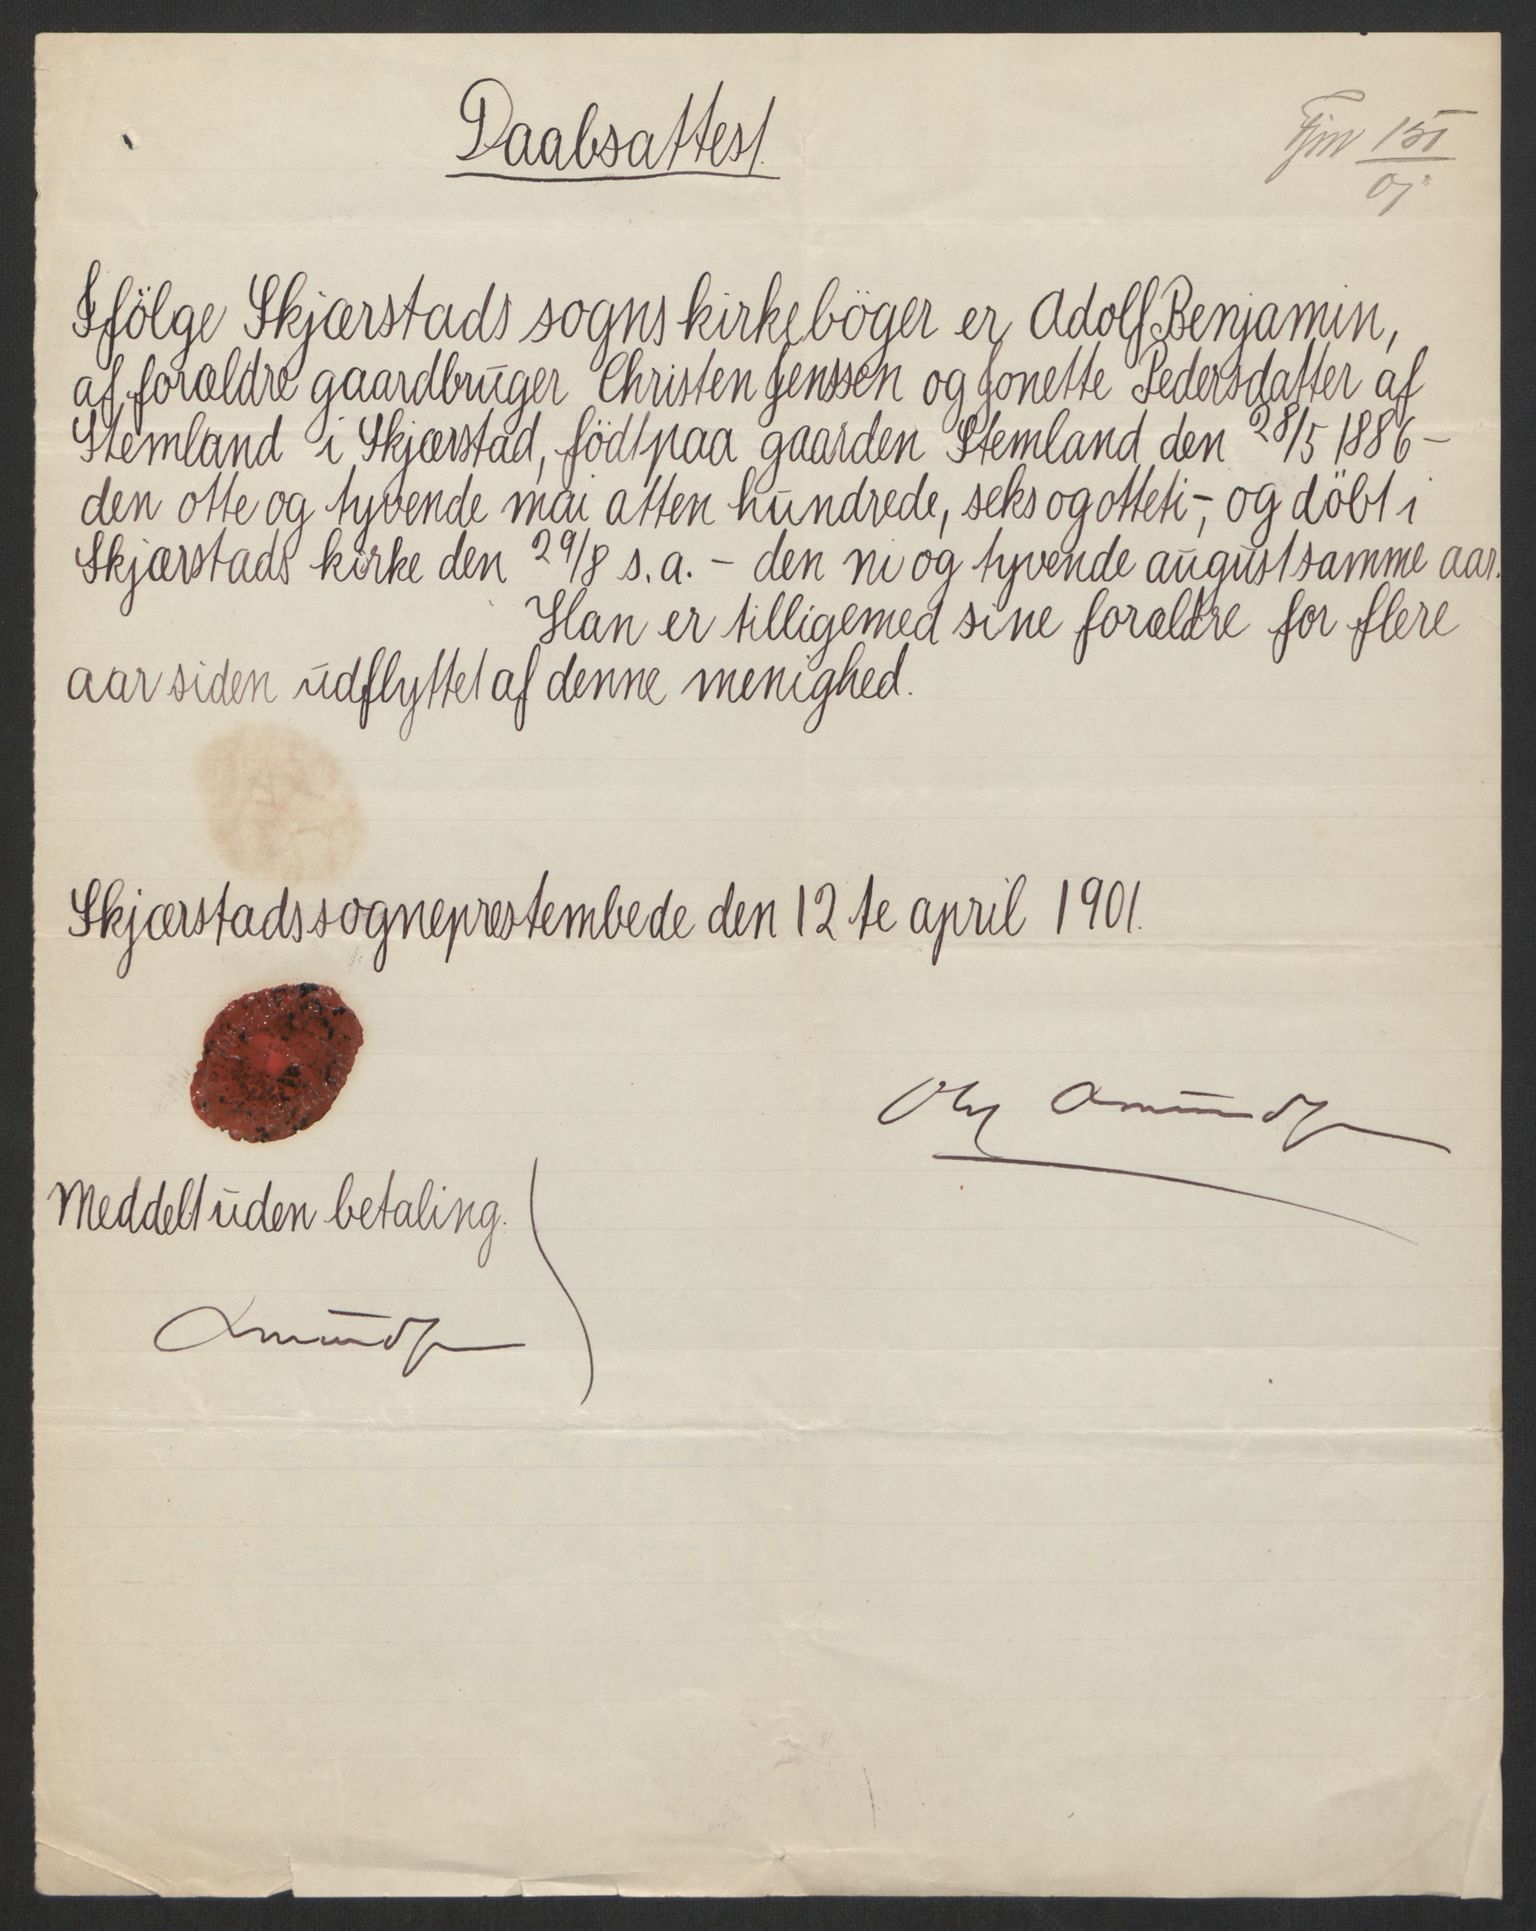 Daabsattest.
Fjm 150
01
Ifölge Skjærstads sogns kirkeböger er Adolf Benjamin,
af forældre gaardbruger Christen Jenssen og Jonette Pedersdatter af
Stemland i Skjærstad, födt paa gaarden Stemland den 28/5 1886 –
den otte og tyvende mai atten hundrede, seks og otteti –, og döbt i
Skjærstads kirke den 29/8 s. a. – den ni og tyvende august samme aar.
Han er tilligemed sine forældre for flere
aar siden udflyttet af denne menighed.
Skjærstads sogneprestembede den 12te april 1901.
Ole Amundsen
Meddelt uden betaling.
Amundsen